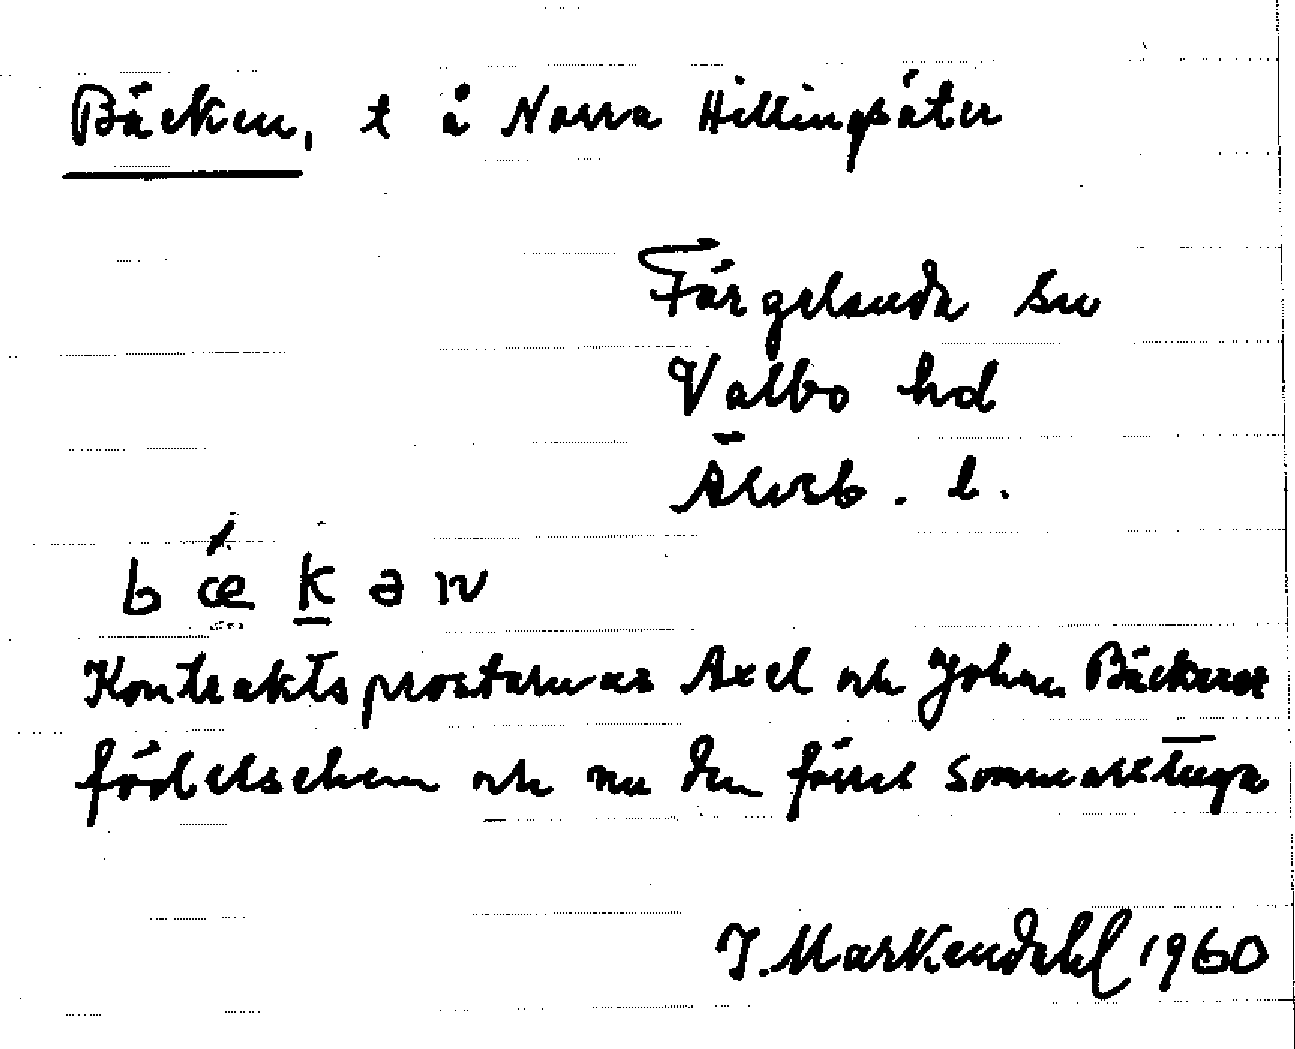 Bäcken, t å Norra Hillingsäter
Färgelanda sn
Valbo hd
Älvsb. l.
bæ̀kən
Kontraktsprostarnas Axel och Johan Bäckerot
födelsehem och nu den förres sommarstuga
I. Markendahl 1960